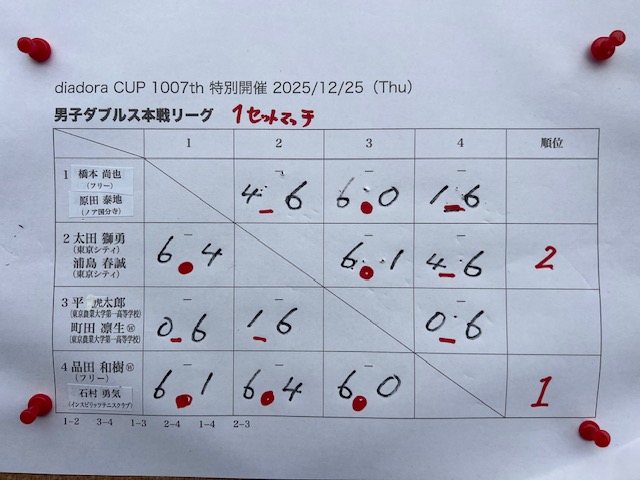 diadora CUP 1007th 特別開催 2025/12/25（Thu）
男子ダブルス本戦リーグ 1セットマッチ
1 2 3 4 順位
1 橋本 尚也
（フリー）
原田 泰地
（ノア国分寺）
4-6 6-0 1-6
2 太田 獅勇
（東京シティ）
浦島 春誠
（東京シティ）
6-4 6-1 4-6 2
3 平 虎太郎
（東京農業大学第一高等学校）
町田 凛生㊕
（東京農業大学第一高等学校）
0-6 1-6 0-6
4 品田 和樹㊕
（フリー）
石村 勇気
（インスピリッツテニスクラブ）
6-1 6-4 6-0 1
1-2 3-4 1-3 2-4 1-4 2-3